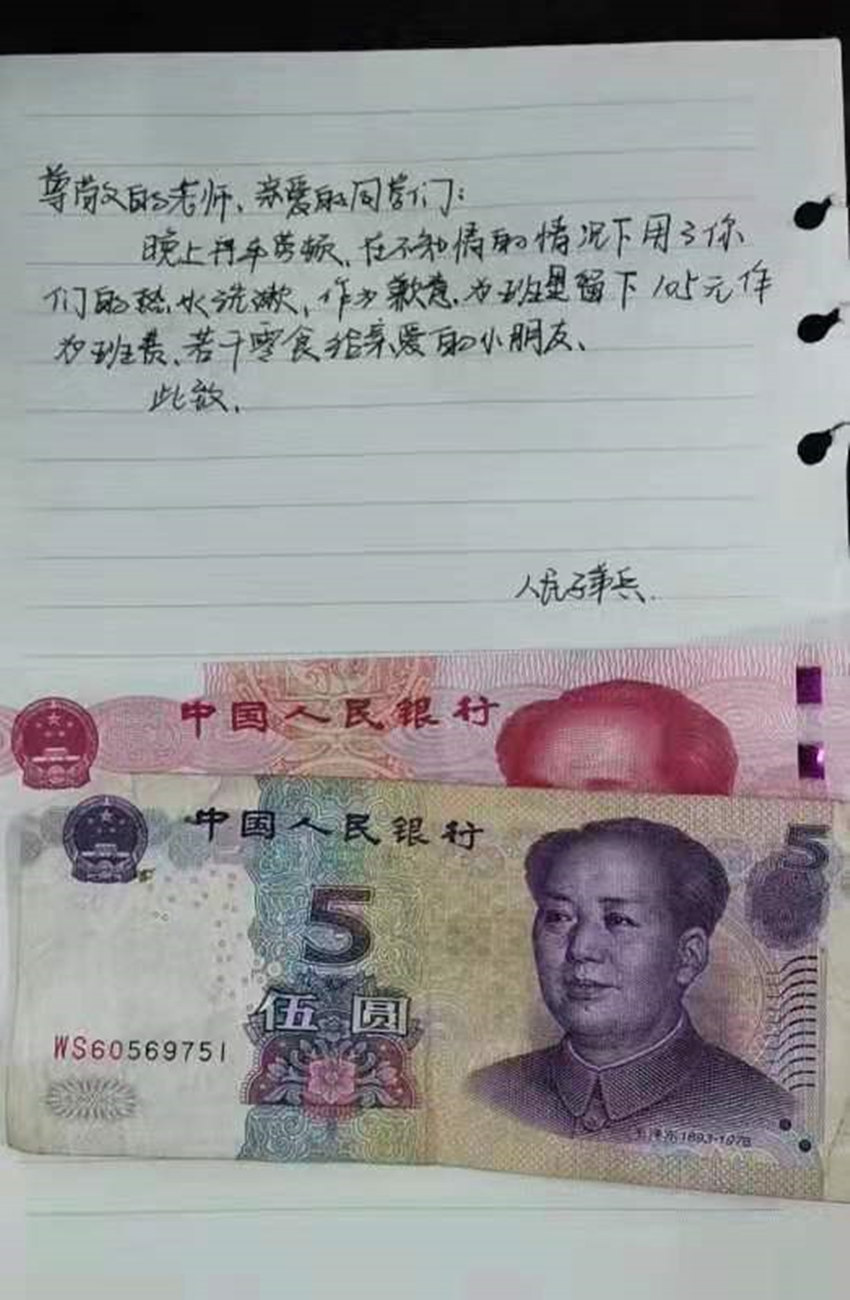 尊敬的老师、亲爱的同学们：
晚上舟车劳顿、在不知情的情况下用了你
们的热水洗漱、作为歉意、为班里留下105元作
为班费、若干零食给亲爱的小朋友、
此致、
人民子弟兵
中国人民银行
中国人民银行
5
5
伍圆
WS60569751
毛泽东1893-1976